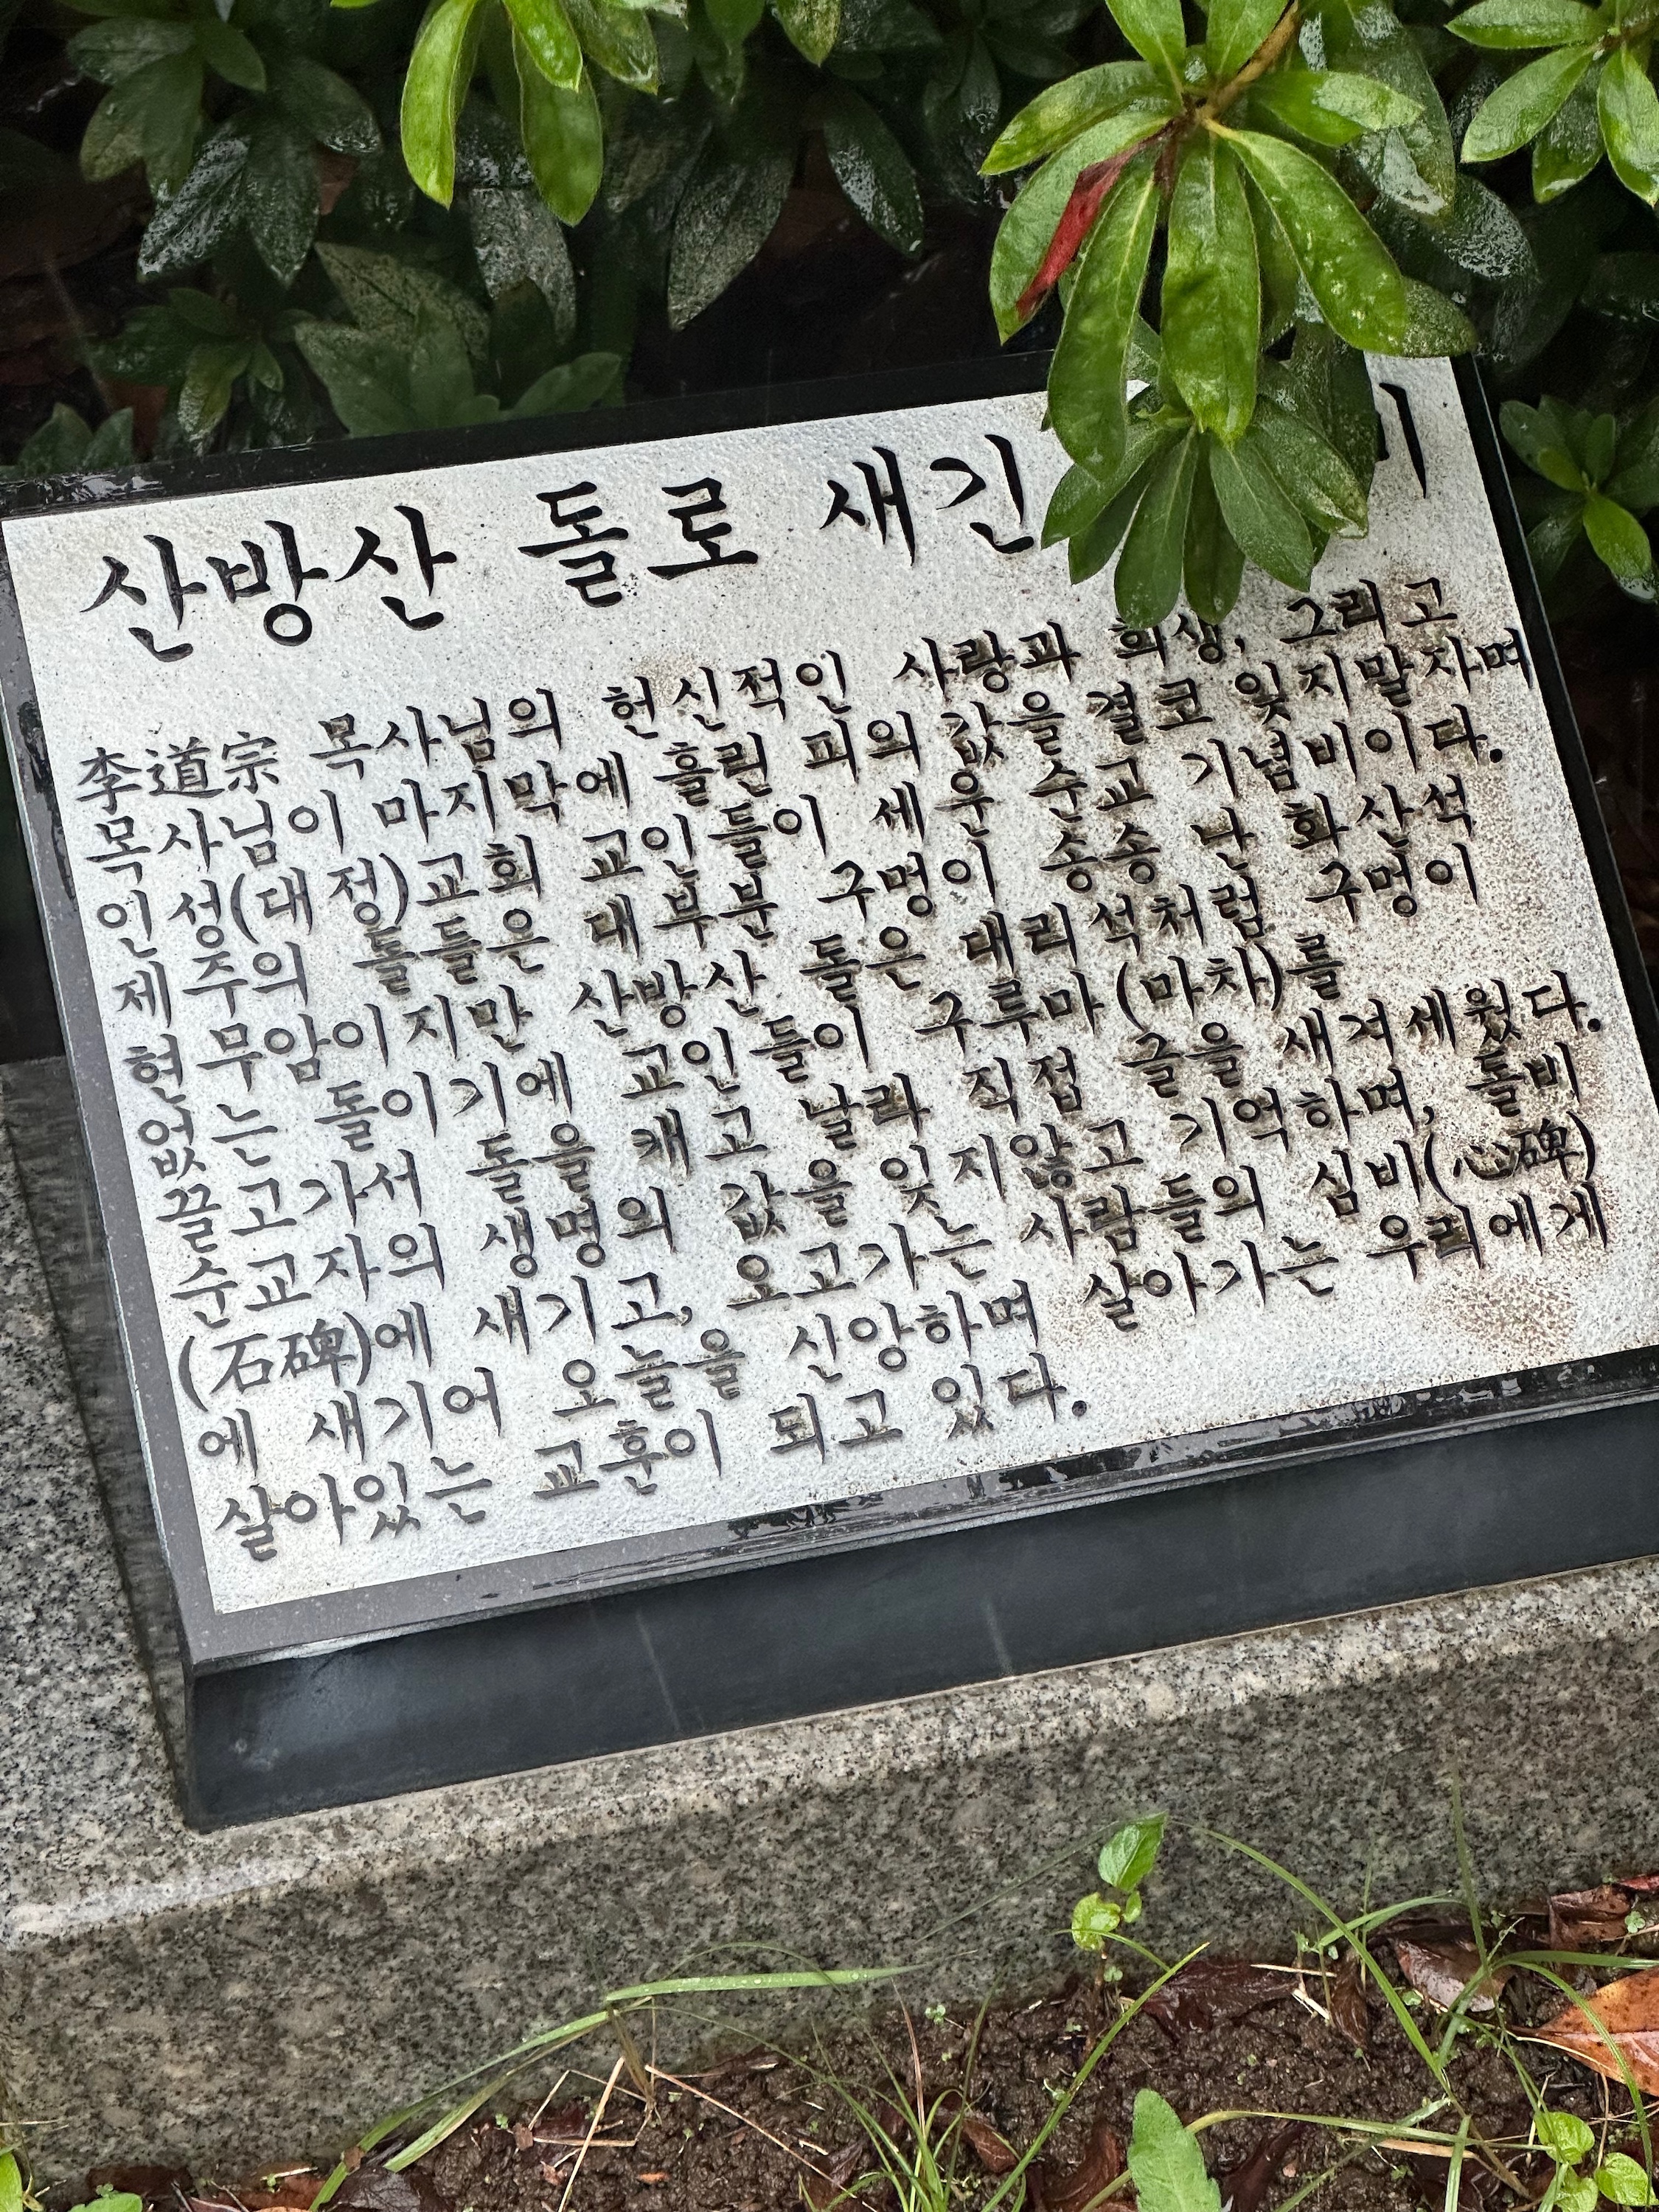 산방산 돌로 새긴
李道宗 목사님의 헌신적인 사랑과 희생, 그리고
목사님이 마지막에 흘린 피의 값을 결코 잊지말자며
인성(대정)교회 교인들이 세운 순교 기념비이다.
제주의 돌들은 대부분 구멍이 송송 난 화산석
현무암이지만 산방산 돌은 대리석처럼 구멍이
없는 돌이기에 교인들이 구루마(마차)를
끌고가서 돌을 캐고 날라 직접 글을 새겨세웠다.
순교자의 생명의 값을 잊지않고 기억하며, 돌비
(石碑)에 새기고, 오고가는 사람들의 심비(心碑)
에 새기어 오늘을 신앙하며 살아가는 우리에게
살아있는 교훈이 되고 있다.